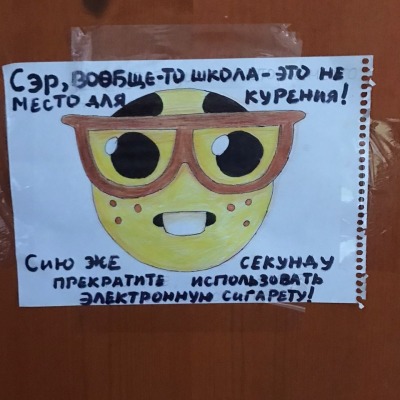 Сэр, вообще-то школа - это не
место для курения!
Сию же секунду
прекратите использовать
электронную сигарету!